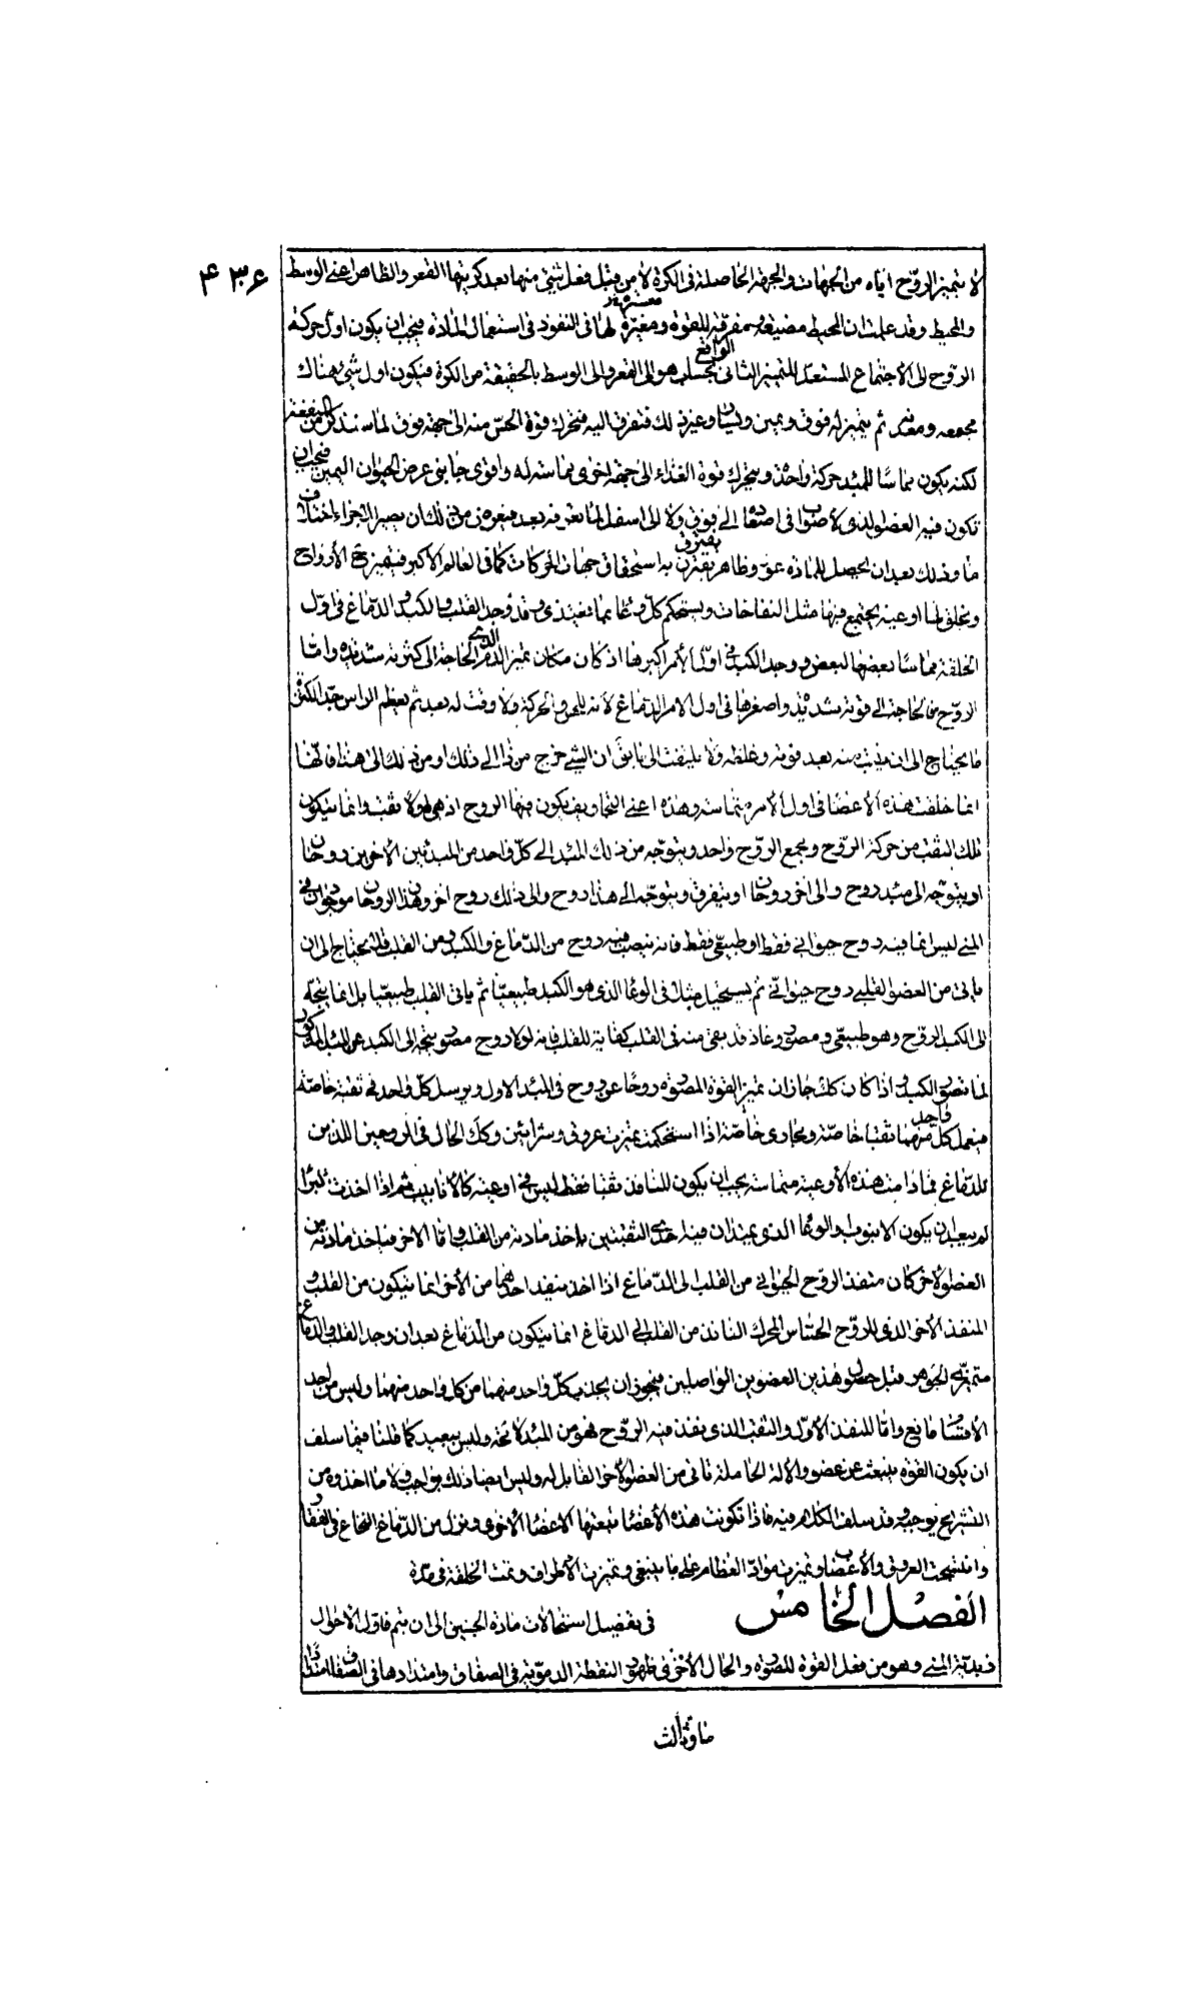 ۴۳۶
لا بتميز الروح اياه من الجهات والجهة الحاصلة فى الكرة لا من قبل فعل شئ منها بعد كريتها القعر والظاهر اعنى الوسط
والمحيط وقد علمت ان المحيط مضيعة مفرقة للقوة ومغيرة لها فى النفوذ فى استعمال المادة فيجب ان يكون اول حركة
الروح الى الاجتماع المستعد للتميز الثانى هو الى القعر والى الوسط بالحقيقة من الكرة فيكون اول شئ هناك
مجمعه ثم يتميز له فوق ويمين ويسار وغير ذلك فتفرق اليه فيتحرك قوة الحس منه الى جهة فوق لما سنذكر من
لكنه يكون مماسا للمبدء حركة واحدة ويتحرك قوة الغذاء الى جهة اخرى مماسة له واقوى جانبى عرض الحيوان اليمين فيجب ان
تكون فيه العضو الذى لا الى فوق ولا الى اسفل
ما وذلك بعد ان يحصل للمادة عمق وظاهر يقترن به استحقاق جهات الحركات كما فى العالم الاكبر فيتميز الارواح
ويخلق لها اوعية يجتمع فيها مثل النفاخات ويستحكم كل وعاء بما يغتذى وقد وجد القلب والكبد والدماغ فى اول
الخلقة مماسا بعضها لبعض ووجد الكبد فى اول الامر اكبرها اذ كان مكان تميز الدم الذى الحاجة الى كثرته شديدة واما
الروح فالحاجة الى قوته شديدة واصغرها فى اول الامر الدماغ لانه للحس والحركة ولا وقت له بعد ثم يعظم الراس جدا لكثرة
ما يحتاج الى ان بعد قوته وغلظه ولا يلتفت الى ما يق ان الشئ خرج من ذا الى ذلك او من ذلك الى هذا فانها
انما خلقت هذه الاعضا فى اول الامر متماسة وهذه اعنى التجاويف يكون فيها الروح اذ هى اولا ثقب وانما يتكون
تلك الثقب من حركة الروح ومجمع الروح واحد ويتوجه من ذلك المبدء الى كل واحد من المبدئين الاخرين روحان
او يتوجه الى مبدء روح والى اخر روحان او يتفرق ويتوجه الى هذا روح والى ذلك روح اخر وهذان الروحان موجودان فى
المنى ليس انما فيه روح حيوانى فقط او طبيعى فقط فانه ينصب فيه روح من الدماغ والكبد ومن القلب فلا يحتاج الى ان
ياتى من العضو القلبى روح حيوانى ثم يستحيل هناك فى الوعاء الذى هو الكبد طبيعيا ثم ياتى القلب طبيعيا بل انما يتجه
الى الكبد الروح وهو طبيعى ومصور وغاذ قد بقى منه فى القلب كفاية للقلب فانه لولا روح مصور يتجه الى الكبد عن المبدء المذكور
لما تصور الكبد واذا كان كك جاز ان تميز القوة المصورة روحا عن روح فى المبدء الاول ويرسل كل واحد فى ثقبة خاصة
فيعمل كل واحد منهما ثقبا خاصة ومجارى خاصة اذا استحكمت تميزت عروق وشرائين وكك الحال فى الروحين اللذين
للدماغ فما دامت هذه الاوعية متماسة يجب ان يكون للنافذ ثقبا فقط ليس فى اوعية كالانابيب ثم اذا اخذت تتبرا
لم يبعد ان يكون الانبوب والوعاء الذى يميزان فيه احدى الثقبتين ياخذ مادته من القلب واما الاخر فياخذ مادته من
العضو الاخر كان منفذ الروح الحيوانى من القلب الى الدماغ اذا اخذ منفذ احدهما من الاخر انما يتكون من القلب و
المنفذ الاخر الذى للروح الحساس المحرك النافذ من القلب الى الدماغ انما يتكون من الدماغ بعد ان وجد القلب والدماغ
متميزى الجوهر قبل حصول هذين العضوين الواصلين فيجوز ان يجذب كل واحد منهما من كل واحد منهما وليس من احد
الاقسام مانع واما المنفذ الاول والثقب الذى ينفذ فيه الروح فهو من المبدء لا محة وليس ببعيد كما قلنا فيما سلف
ان يكون القوة ينبعث عن عضو والالة الحاملة تاتى من العضو الاخر القابل له وليس ايضا ذلك بواجب ولا ما اخذوه من
التشريح يوجبه وقد سلف الكلام فيه فاذا تكونت هذه الاعضا تبعتها الاعضا الاخرى ونزل من الدماغ النخاع فى الفقار
وانتسجت العروق والاعصاب وتميزت مواد العظام على ما ينبغى وتميزت الاطراف وتمت الخلقة فى مدة
الفصل الخامس فى تفصيل استحالات مادة الجنين الى ان يتم فاول الاحوال
زبدية المنى وهو من فعل القوة المصورة والحال الاخرى ظهور النقطة الدموية فى الصفاق وامتدادها فى الصفاق امتدادا
ما وثالث